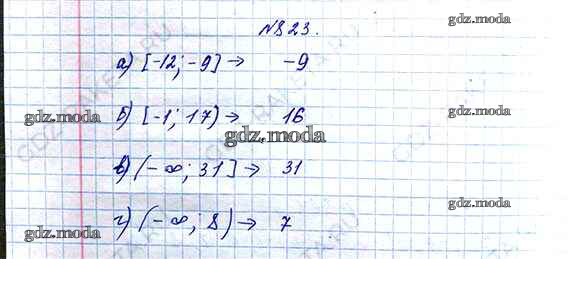 №823.
gdz.moda
а) [-12; -9] → -9
gdz.moda
б) [-1; 17) → 16
gdz.moda
gdz.moda
gdz.moda
в) (-∞; 31] → 31
gdz.moda
г) (-∞; 8) → 7
gdz.moda
gdz.moda